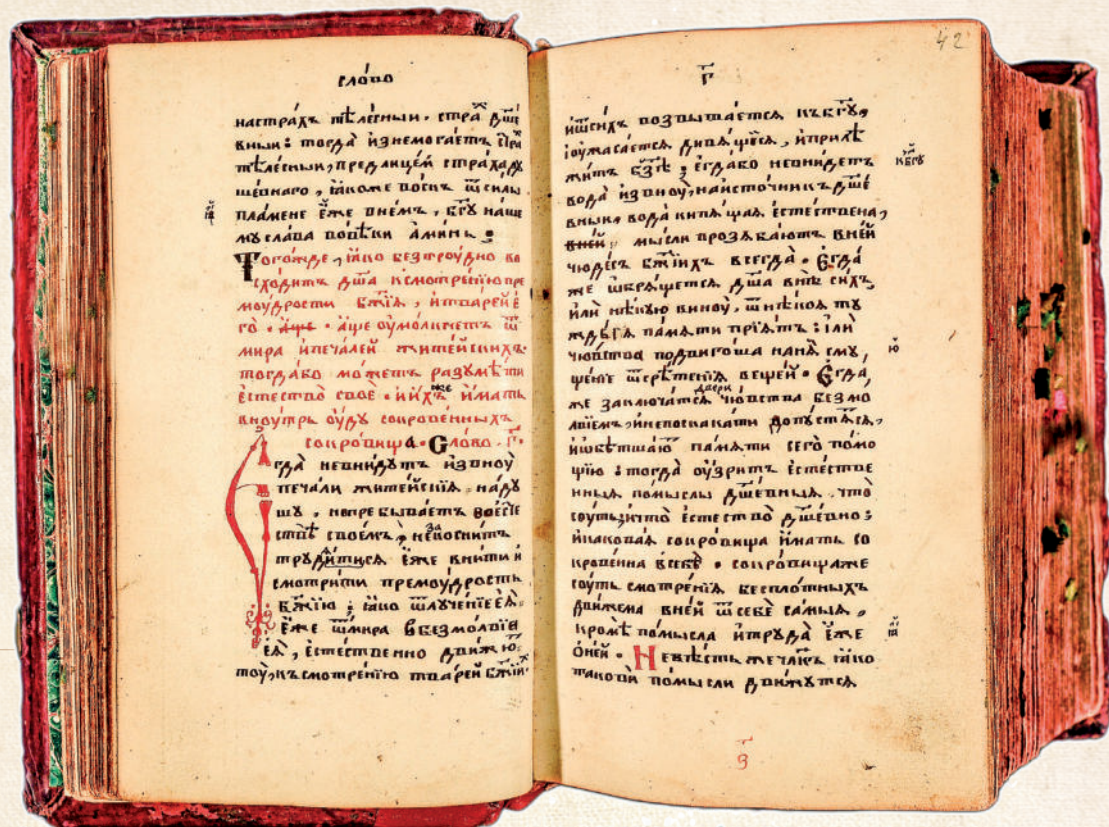 сло́во
настрахъ тѣле́сныи. стра́х дш҃е
вныи: тогда̀ изнемога́етъ стра
тѣле́сныи, пред лице́мъ стра́хаду
ше́внаго, ꙗ҆́коже во́скъ ѿ си́лы
пла́мене є҆́же внем. бг҃у на́ше
мꙋ сла́ва во вѣ́ки а҆ми́нь:
Тогѡ́жде, ꙗ҆́ко без трꙋ́дно во
схо́дитъ дш҃а ксмотрѣ́нїю пре
мꙋ́дрости бж҃їѧ, и҆ тваре́й є҆
го̀. а҆́ще оу҆мо́лкнетъ ѿ
ми́ра и҆ печа́лей жите́йскихъ.
тогда́бо мо́жетъ разꙋмѣ́ти
є҆стество̀ своѐ. и҆ и҆́хже и҆́мать
внꙋ́трь оу҆́дꙋ сокрове́нныхъ
сокро́вища. Сло́во. г҃.
Є҆гда̀ невни́дꙋтъ и҆звнꙋ̀
печа́ли жите́йскїѧ надꙋ
шꙋ, но пребыва́етъ во є҆сте
ствѣ̀ свое́мъ, невоснитъ
трꙋди́тисѧ є҆́же вни́ти и҆
смотри́ти премꙋ́дрость
бж҃їю; ꙗ҆́ко ѿлꙋче́нїе є҆ѧ̀.
є҆́же ѿ ми́ра в безмо́лвїе
є҆ѧ̀, є҆сте́ственно дви́жетъ ю҆
тоу̀, къ смотрѣ́нїю тваре́й бж҃їихъ
42
г҃
и҆ ѿ си́хъ возвыша́етсѧ къ бг҃ꙋ,
и҆ оу҆жаса́етсѧ дивѧ́щисѧ, и҆ прилѣ
жи́тъ бз҃ѣ; є҆гда́бо невни́детъ
вода̀ и҆звнꙋ̀, на и҆сто́чникъ дш҃е
вныи. вода̀ кипѧ́щаѧ є҆сте́ствена,
вне́й, мы́сли прозѧба́ютъ вне́й
чюде́съ бж҃їихъ всегда̀. Є҆гда́
же ѡ҆брѧ́щетсѧ дш҃а внѣ̀ си́хъ,
и҆лѝ нѣ́кꙋю винꙋ̀, ѿ нѣ́коѧ тꙋ
жды́ѧ па́мѧти прїѧ́тъ: и҆лѝ
чю́вства подвиго́ша на нѧ̀ смꙋ
ще́нїе ѿ срѣ́тенїѧ веще́й. Є҆гда́
же заключа́тсѧ две́ри чю́вства безмо́
лвїемъ, и҆ непоскака́ти допꙋстѧ́сѧ,
и҆ ѡ҆бетша́ютъ па́мѧти сего̀ по́мо
щїю: тогда̀ оу҆́зритъ є҆сте́стве
ныѧ по́мыслы дш҃е́вныѧ. что̀
сꙋ́ть; и҆ что̀ є҆стество̀ дш҃е́вно:
и҆ какова́ѧ сокро́вища и҆́мать со
крове́нна в себѣ̀. сокро́вищаже
сꙋ́ть смотрѣ́нїѧ беспло́тныхъ
дви́жема вне́й ѿ себѐ самы́ѧ,
кромѣ̀ по́мысла и҆ трꙋда̀ є҆́же
ѡ҆ не́й. Не вѣ́сть же человѣ́къ ꙗ҆́ко
такові́и по́мысли дви́жꙋтсѧ
к бг҃ꙋ
ю҆